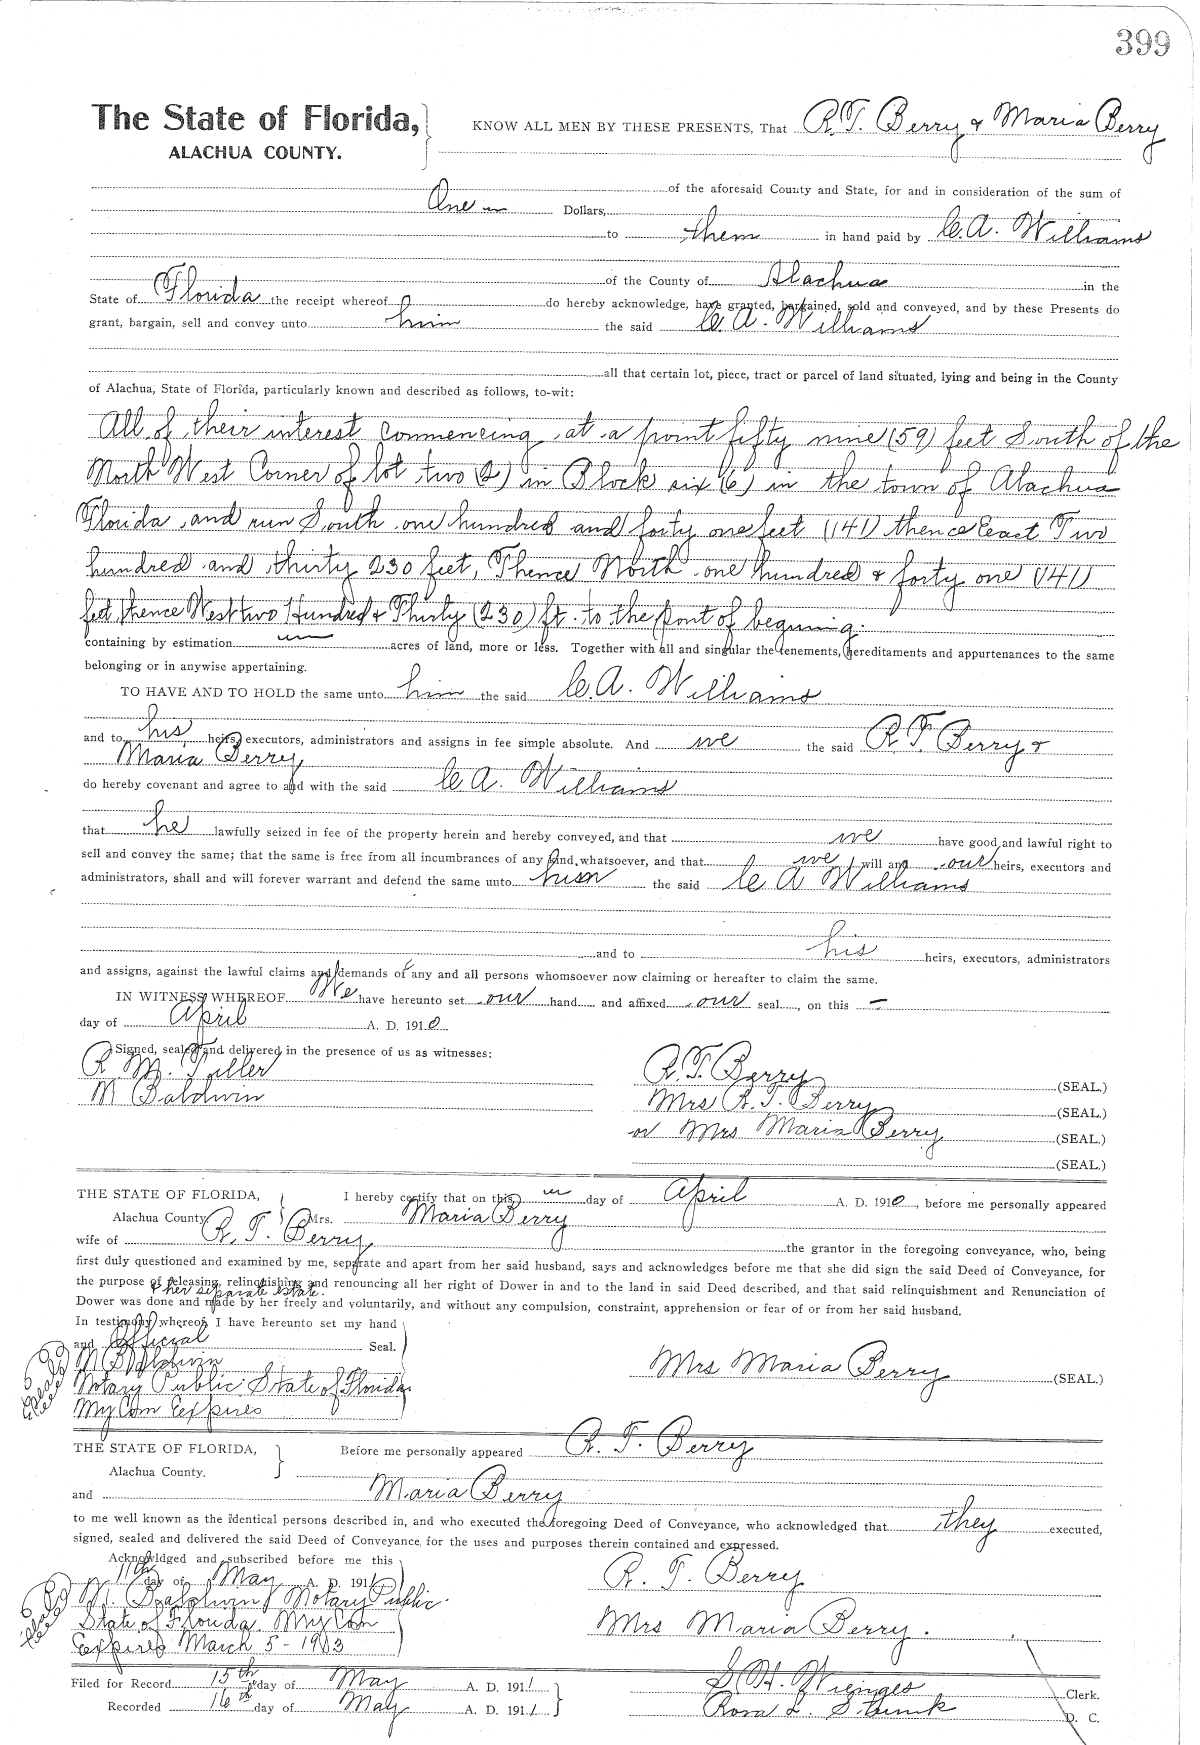 399
The State of Florida, KNOW ALL MEN BY THESE PRESENTS, That R.T. Berry & Maria Berry
ALACHUA COUNTY.
of the aforesaid County and State, for and in consideration of the sum of
One Dollars,
to them in hand paid by C.A. Williams
of the County of Alachua in the
State of Florida the receipt whereof do hereby acknowledge, have granted, bargained, sold and conveyed, and by these Presents do
grant, bargain, sell and convey unto him the said C.A. Williams
all that certain lot, piece, tract or parcel of land situated, lying and being in the County
of Alachua, State of Florida, particularly known and described as follows, to-wit:
All of their interest commencing at a point fifty nine (59) feet South of the
North West Corner of lot two (2) in Block six (6) in the town of Alachua
Florida and run South one hundred and forty one feet (141) thence East Two
hundred and thirty 230 feet, Thence North one hundred & forty one (141)
feet, thence West two Hundred & Thirty (230) ft. to the pont of beginning.
containing by estimation acres of land, more or less. Together with all and singular the tenements, hereditaments and appurtenances to the same
belonging or in anywise appertaining.
TO HAVE AND TO HOLD the same unto him the said C.A. Williams
and to his heirs, executors, administrators and assigns in fee simple absolute. And we the said R T Berry &
Maria Berry
do hereby covenant and agree to and with the said C A. Williams
that he lawfully seized in fee of the property herein and hereby conveyed, and that we have good and lawful right to
sell and convey the same; that the same is free from all incumbrances of any kind whatsoever, and that we will and our heirs, executors and
administrators, shall and will forever warrant and defend the same unto him the said C A Williams
and to his heirs, executors, administrators
and assigns, against the lawful claims and demands of any and all persons whomsoever now claiming or hereafter to claim the same.
IN WITNESS WHEREOF We have hereunto set our hand and affixed our seal, on this —
day of April A. D. 1910
Signed, sealed and delivered in the presence of us as witnesses:
R M. Tuller R.T. Berry (SEAL.)
M Baldwin Mrs R.T. Berry (SEAL.)
or Mrs Maria Berry (SEAL.)
(SEAL.)
THE STATE OF FLORIDA, I hereby certify that on this day of April A. D. 1910, before me personally appeared
Alachua County. Mrs. Maria Berry
wife of R. T. Berry the grantor in the foregoing conveyance, who, being
first duly questioned and examined by me, separate and apart from her said husband, says and acknowledges before me that she did sign the said Deed of Conveyance, for
the purpose of releasing, relinquishing and renouncing all her right of Dower in and to the land in said Deed described, and that said relinquishment and Renunciation of
& her separate estate.
Dower was done and made by her freely and voluntarily, and without any compulsion, constraint, apprehension or fear of or from her said husband.
In testimony whereof, I have hereunto set my hand
and Official Seal.
M Baldwin Mrs Maria Berry (SEAL.)
Notary Public State of Florida
My Com Expires
THE STATE OF FLORIDA, Before me personally appeared R. T. Berry
Alachua County.
and Maria Berry
to me well known as the identical persons described in, and who executed the foregoing Deed of Conveyance, who acknowledged that they executed,
signed, sealed and delivered the said Deed of Conveyance for the uses and purposes therein contained and expressed.
Acknowldged and subscribed before me this R. T. Berry
11th day of May A. D. 1911
M. Baldwin Notary Public.
State of Florida My Com Mrs Maria Berry.
Expires March 5 - 1913
Filed for Record 15th day of May A. D. 1911 S. H. Wienges Clerk.
Recorded 16th day of May A. D. 1911 Rosa L. D. C.